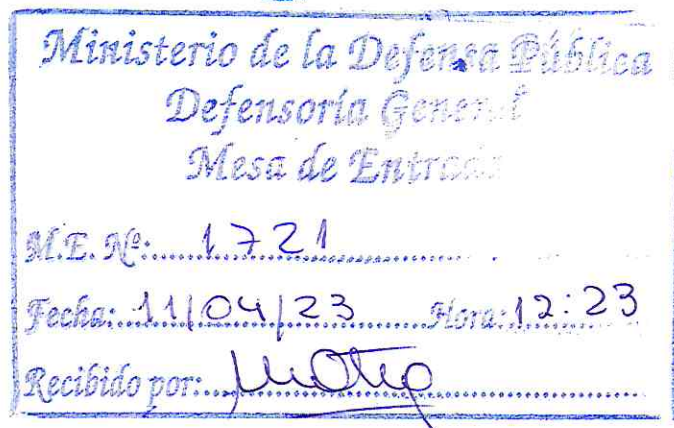 Ministerio de la Defensa Pública
Defensoría General
Mesa de Entrada
M.E. Nº: 1721
Fecha: 11/04/23 Hora: 12:23
Recibido por: